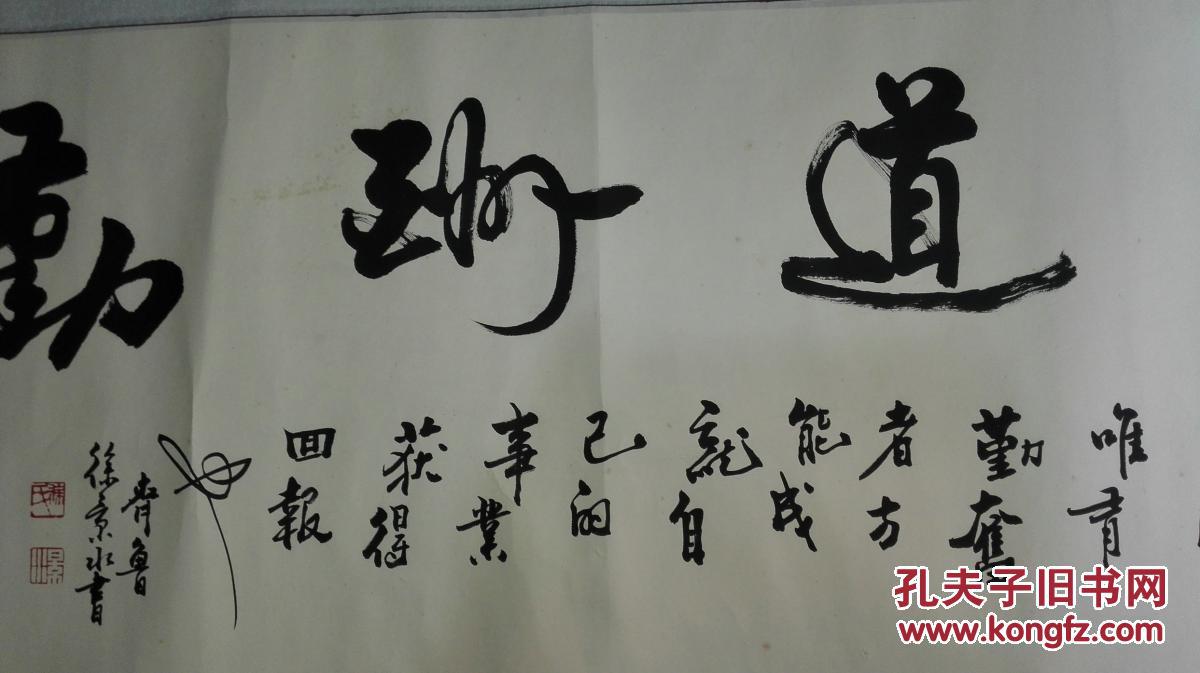 道酬勤
唯有
勤奮
者方
能成
就自
己的
事業
获得
回報
也
齊魯
徐景水書
孔夫子旧书网
www.kongfz.com